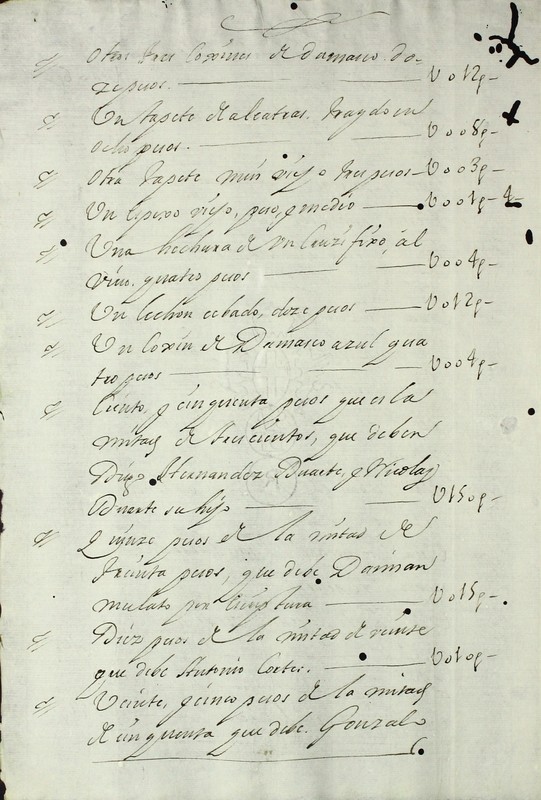 Otros tres Coxines de damasco do-
ze pesos. U012p
Un tapete de alcatras. traydo en
ocho pesos. U008p
Otro tapete muy viejo tres pesos U003p
Un espexo viejo, peso, y medio U001p 4
Una hechura de Un Cruzifixo, al
vivo. quatro pesos U004p
Un lechon cebado, doze pesos U012p
Un Coxin de Damasco azul qua
tro pesos U004p
Ciento, y cinquenta pesos que es la
mitad de trescientos, que deben
Diego Hernandez Duarte, y Nicolas
Duarte su hijo U150p
Quinze pesos de la mitad de
treinta pesos, que debe Damian
mulato por escriptura U015p
Diez pesos de la mitad de veinte
que debe Antonio Cortes. U010p
Veinte, y cinco pesos de la mitad
de cinquenta que debe. Gonzalo